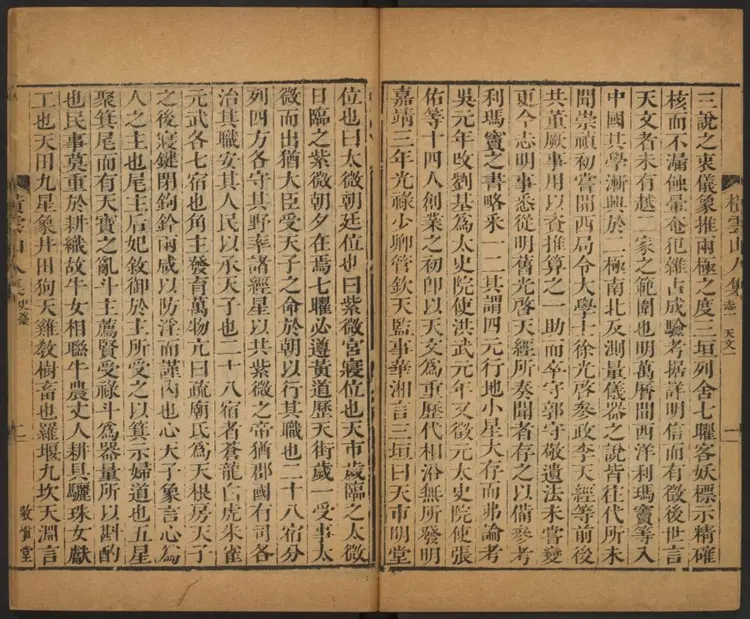 橫雲山人集 志 天文 一
三說之衷儀象推兩極之度三垣列舍七曜客妖標示精確
核而不漏蝕暈奄犯雜占成驗考据詳明信而有徵後世言
天文者未有越二家之範圍也明萬曆間西洋利瑪竇等入
中國其學漸興於二極南北及測量儀器之說皆往代所未
聞崇禎初嘗開西局令大學士徐光啓參政李天經等前後
共董厥事用以資推算之一助而卒守郭守敬遺法未嘗變
更今志明事悉從明舊光啓天經所奏聞者存之以備參考
利瑪竇之書略采一二其謂四元行地小星大存而弗論考
吳元年改劉基爲太史院使洪武元年又徵元太史院使張
佑等十四人創業之初卽以天文爲重歷代相沿無所發明
嘉靖三年光祿少卿管欽天監事華湘言三垣曰天市明堂
位也曰太微朝廷位也曰紫微宮寢位也天市歲臨之太微
日臨之紫微朝夕在焉七曜必遵黃道歷天街歲一受事太
微而出猶大臣受天子之命於朝以行其職也二十八宿分
列四方各守其野率諸經星以共紫微之帝猶郡國有司各
治其職安其人民以承天子也二十八宿者蒼龍白虎朱雀
元武各七宿也角主發育萬物亢曰疏廟氐爲天根房天子
之後寢鍵閉鉤鈐兩咸以防淫而謹內也心天子象言心爲
人之主也尾主后妃敘御於主所受之以箕示婦道也五星
聚箕尾而有天寶之亂斗主薦賢受祿斗爲器量所以斟酌
也民事莫重於耕織故牛女相聯牛農丈人耕具驪珠女獻
工也天田九星象井田狗天雞敎樹畜也羅堰九坎天淵言
橫雲山人 史藁 二